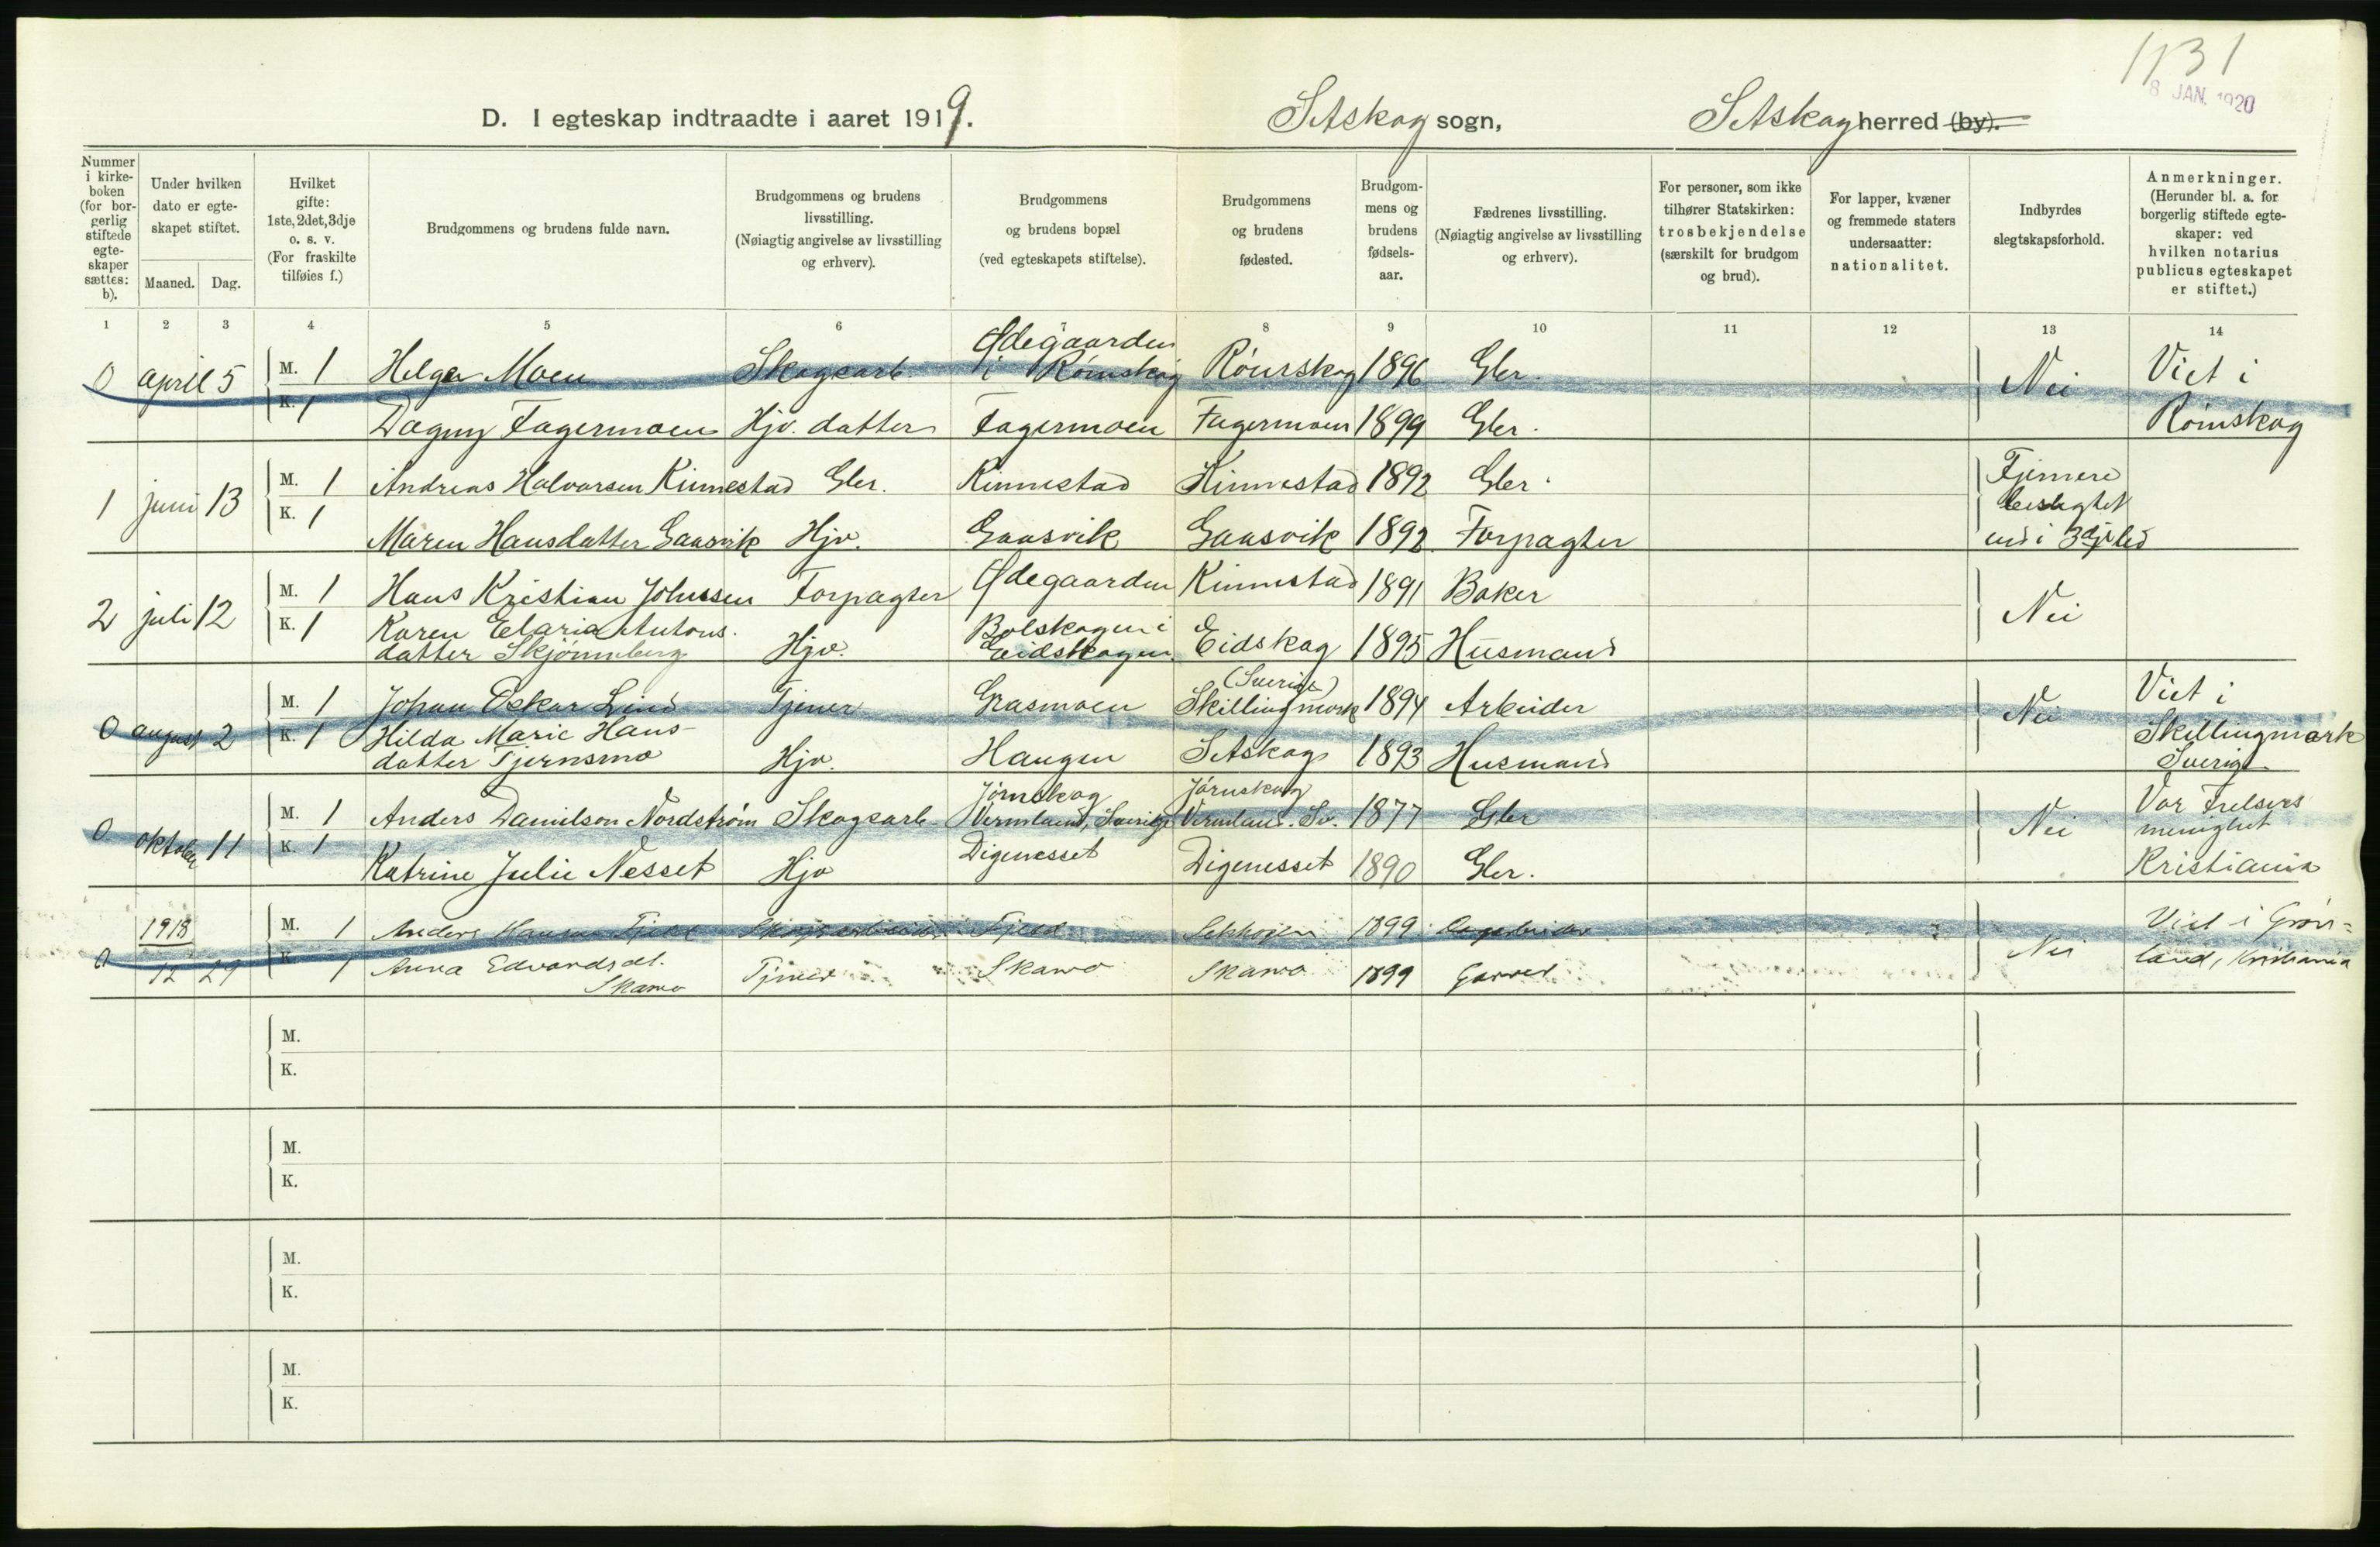 1131
8 JAN. 1920
D. I egteskap indtraadte i aaret 1919. Setskog sogn, Setskog herred (by).
Nummer i kirkeboken (for borgerlig stiftede egteskaper sættes: b).
Under hvilken dato er egteskapet stiftet.
Maaned. Dag.
Hvilket gifte: 1ste, 2det, 3dje o. s. v. (For fraskilte tilføies f.)
Brudgommens og brudens fulde navn.
Brudgommens og brudens livsstilling. (Nøiagtig angivelse av livsstilling og erhverv).
Brudgommens og brudens bopæl (ved egteskapets stiftelse).
Brudgommens og brudens fødested.
Brudgommens og brudens fødselsaar.
Fædrenes livsstilling. (Nøiagtig angivelse av livsstilling og erhverv).
For personer, som ikke tilhører Statskirken: trosbekjendelse (særskilt for brudgom og brud).
For lapper, kvæner og fremmede staters undersaatter: nationalitet.
Indbyrdes slegtskapsforhold.
Anmerkninger. (Herunder bl. a. for borgerlig stiftede egteskaper: ved hvilken notarius publicus egteskapet er stiftet.)
1 2 3 4 5 6 7 8 9 10 11 12 13 14
0 april 5 M. 1 Helger Moen Skogsarb. Ødegaarden i Rømskog Rømskog 1896 Gbr. Nei Viet i Rømskog
K. 1 Dagny Fagermoen Hjv. datter Fagermoen Fagermoen 1899 Gbr.
1 juni 13 M. 1 Andreas Halvorsen Kinnestad Gbr. Kinnestad Kinnestad 1892 Gbr. Fjernere beslegtet end i 3dje led
K. 1 Maren Hansdatter Gaasvik Hjv. Gaasvik Gaasvik 1892 Forpagter
2 juli 12 M. 1 Hans Kristian Johnssen Forpagter Ødegaarden Kinnestad 1891 Baker Nei
K. 1 Karen Elaria Antonsdatter Skjønneberg Hjv. Bolskogen i Eidskogen Eidskog 1895 Husmand
0 august 2 M. 1 Johan Oskar Lind Tjener Grasmoen (Sverige) Skillingmark 1894 Arbeider Nei Viet i Skillingmark Sverige
K. 1 Hilda Marie Hansdatter Tjernsmo Hjv. Haugen Setskog 1893 Husmand
0 oktober 11 M. 1 Anders Danielson Nordstrøm Skogsarb. Järnskog Vermland, Sverige Järnskog Vermland. Sv. 1877 Gbr Nei Vor Frelsers menighet Kristiania
K. 1 Katrine Julie Nesset Hjv Digenesset Digenesset 1890 Gbr.
0 1918 12 29 M. 1 Anders Hansen Fjeld Skogsarbeider Fjeld 1899 Nei Viet i Grønland, Kristiania
K. 1 Anna Edvardsdt. Skamo Tjener Skamo Skamo 1899
M.
K.
M.
K.
M.
K.
M.
K.